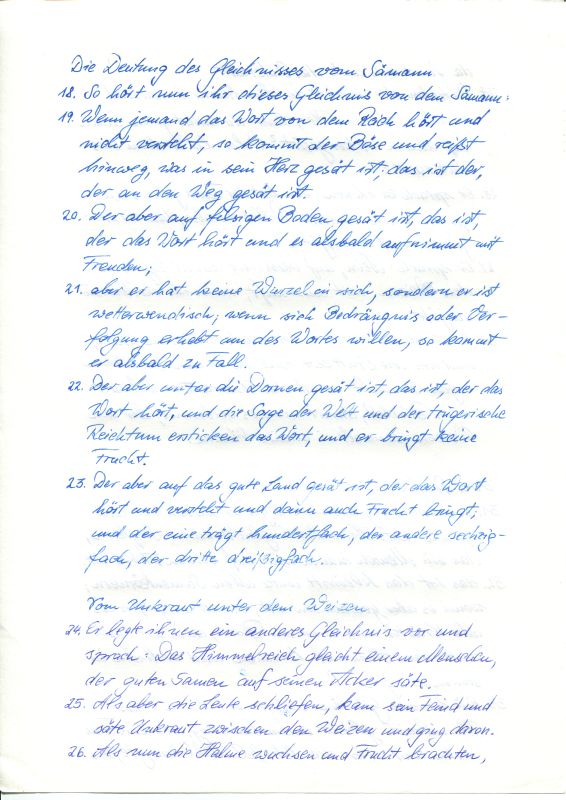 Die Deutung des Gleichnisses vom Sämann
18. So hört nun ihr dieses Gleichnis von dem Sämann:
19. Wenn jemand das Wort von dem Reich hört und
nicht versteht, so kommt der Böse und reißt
hinweg, was in sein Herz gesät ist; das ist der,
der an den Weg gesät ist.
20. Der aber auf felsigen Boden gesät ist, das ist,
der das Wort hört und es alsbald aufnimmt mit
Freuden;
21. aber er hat keine Wurzel in sich, sondern er ist
wetterwendisch; wenn sich Bedrängnis oder Ver-
folgung erhebt um des Wortes willen, so kommt
er alsbald zu Fall.
22. Der aber unter die Dornen gesät ist, das ist, der das
Wort hört, und die Sorge der Welt und der trügerische
Reichtum ersticken das Wort, und er bringt keine
Frucht.
23. Der aber auf das gute Land gesät ist, der das Wort
hört und versteht und dann auch Frucht bringt;
und der eine trägt hundertfach, der andere sechzig-
fach, der dritte dreißigfach.
Vom Unkraut unter dem Weizen
24. Er legte ihnen ein anderes Gleichnis vor und
sprach: Das Himmelreich gleicht einem Menschen,
der guten Samen auf seinen Acker säte.
25. Als aber die Leute schliefen, kam sein Feind und
säte Unkraut zwischen den Weizen und ging davon.
26. Als nun die Halme wuchsen und Frucht brachten,